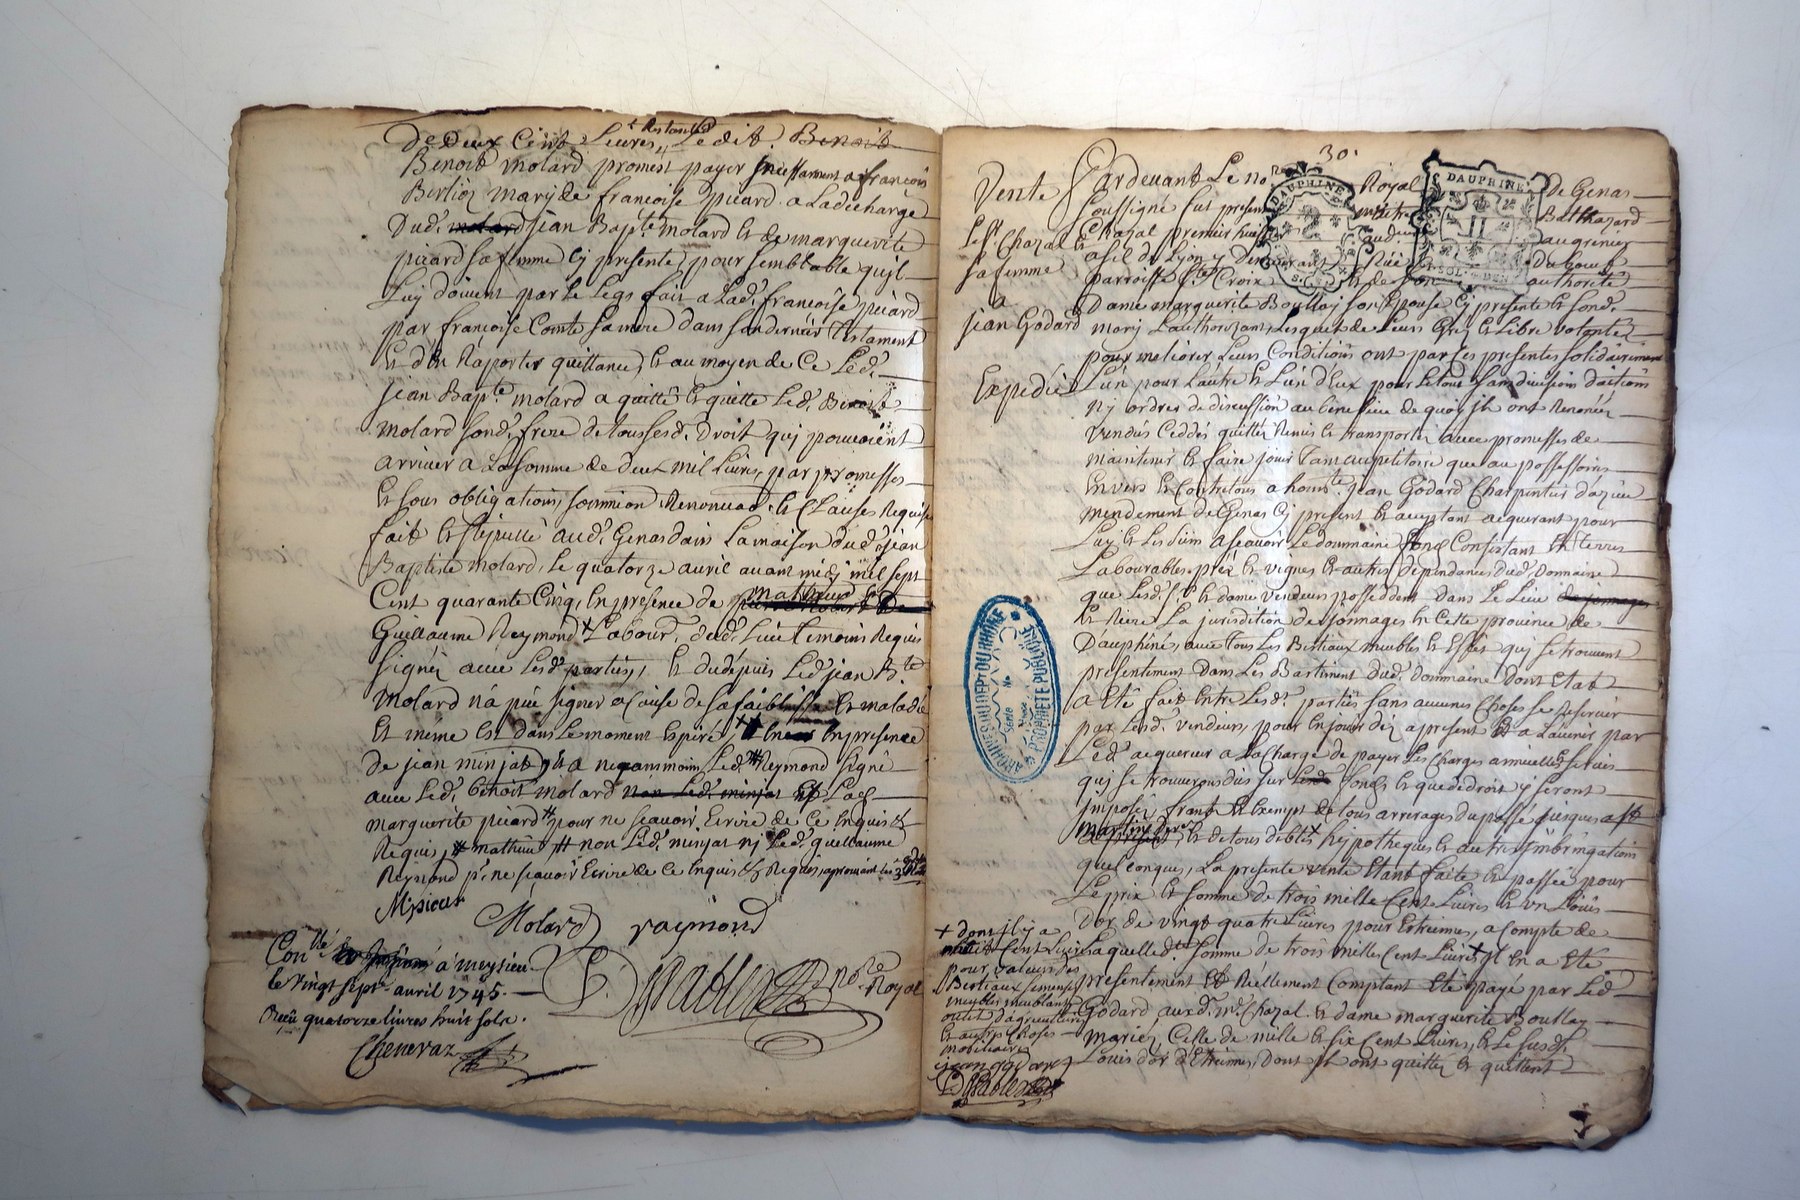 De Deux Cent Livres, restantes Ledit Benoit
Benoit Molard promest payer incessamment a françois
Berlioz mary de françoise picard a La decharge
Dud. molard Jean Bapte molard Et de marguerite
picard sa femme Cy presente, pour semblable qu'jl
Luy doivent par Le Legs fait a Lad. françoise picard
par françoise Comte sa mere dans son dernier Testament
Et d'En Raporter quittance, Et au moyen de Ce Led.
Jean Bapt.e molard a quitté Et quitte Led. Benoit
molard sond. frere de tous sesd. Droit quj pouvoient
arriver a La somme de deux mil Livres, par promesses
Et sous obligations, soumion Renonciaõ. Et Clauses Requises
fait Et stipullé aud. Genas dans La maison dud. Jean
Baptiste molard, Le quatorze avril avant midj mil sept
Cent quarante Cinq, En presence de mathieud
Guillaume Reymond Labour. dud. Lieu temoins Requis
signéz avec Lesd. parties, Et du depuis Led. Jean B.te
Molard n'a pué signer a Cause de sa faiblesse Et maladie
Et même Est dans Le moment Expiré, En presence
de Jean minjat Et a neganmoins Led. Reymond signé
avec Led. benoit molard non Led. minjat Et Lad.
marguerite picard pour ne sçavoir Ecrire de Ce Enquis Et
Requis, mathieu non Led. minjat nj Led. guillaume
Reymond pr. ne sçavoir Ecrire de Ce Enquis Et Requis, aprouvant les 3
Molard raymond
not.re Royal
Con.llé á meysieu
le vingt sept avril 1745.
Receu quatorze livres huit sols.
Chenevaz
30.
Vente
Le S.r Chazal Et
sa femme
a
Jean Godard
Expedié
Pardevant Le no.re Royal De Genas
soussigné fut present Balthazard
Chazal premier huissier aud. au grenier
a sel de Lyon y Demeurant Rüe du bœuf
parroisse S.te Croix Et de son authorité
Dame marguerite Boullay son Epouse Cy presente Et sond.
mary L'authorizant, Lesquels de Leurs Gréz Et Libre volonté
pour meliorer Leurs Conditions ont par Ces presentes solidairement
L'un pour L'autre Et L'un d'Eux pour Le tout sans division d'action
ny ordres de discussion au benefice de quoy jls ont Renoncéz
Vendus Ceddés quittéz Remis Et transportéz avec promesses de
maintenir Et faire joüir Tant au petitoire que au possessoire
Envers Et Contre tous a honn.te Jean Godard Charpentier d'azieu
mendement de Genas Cy present Et acceptant acquerant pour
Luy Et Les siens a sçavoir Le dommaine fond Consistant En terres
Labourables, préz Et vignes Et autres dependances dud. Domaine
que Lesd. S.r Et dame vendeurs possedent dans Le Lieu de jonnages
Et Riere La jurisdition de jonnages En Cette province de
Dauphiné, avec Tous Les Bestiaux meubles Et Effet quj se trouvent
présentement Dans Les Bastiment dud. dommaine dont Etat
a Eté fait Entre Lesd. parties sans aucunes Choses se Reserver
par Lesd. vendeurs, pour En joüir déz a present Et a L'avenir par
Led. acquereur a La Charge de payer Les Charges annuelles servis
quj se trouverons dus sur Lesd. fonds Et que de droit y seront
jmposéz, franc Et Exempt de tous arrerages du passé jusques a st
martin dernier, Et de tous debtes hypotheques Et autres jmbringations
quelconque, La presente vente Etant faite Et passée pour
Le prix Et somme de trois mille Cent Livres Et un Loüis
D'or de vingt quatre Livres pour Etreines, a Compte de
Laquelle d.te somme de trois mille Cent Livres jl En a Eté
presentement Et Réellement Comptant Eté payé par Led.
Godard aux d. m.r Chazal Et dame marguerite Boullay
mariés, Celle de mille Et six Cent Livres, Et Le susd.
Loüis d'or d'Etreines, Dont jls ont quittéz Et quittent
+ dont jl y a
Cent Livres
pour valeur des
Bestiaux semences
meubles meublants
outil d'agriculture
Et autres Choses
mobiliaires
DAUPHINÉ
DAUPHINÉ
II
SOLS
ARCHIVES DU DEPT DU RHONE
PROPRIÉTÉ PUBLIQUE